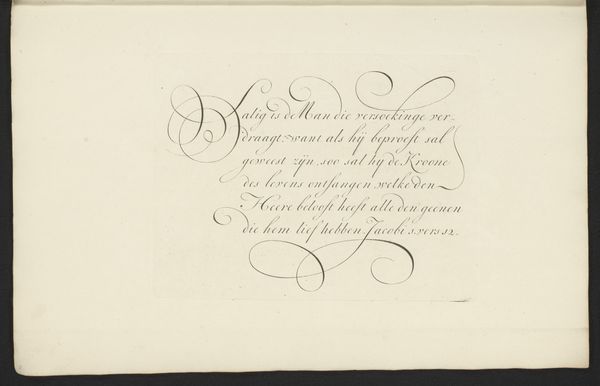 Salig is de Man die versoekinge ver-
draagt; want als hij beproeft sal
geweest zijn, soo sal hy de Kroone
des levens ontfangen welke den
Heere belooft heeft alle den geenen
die hem lief hebben Jacobi 1. vers 12.